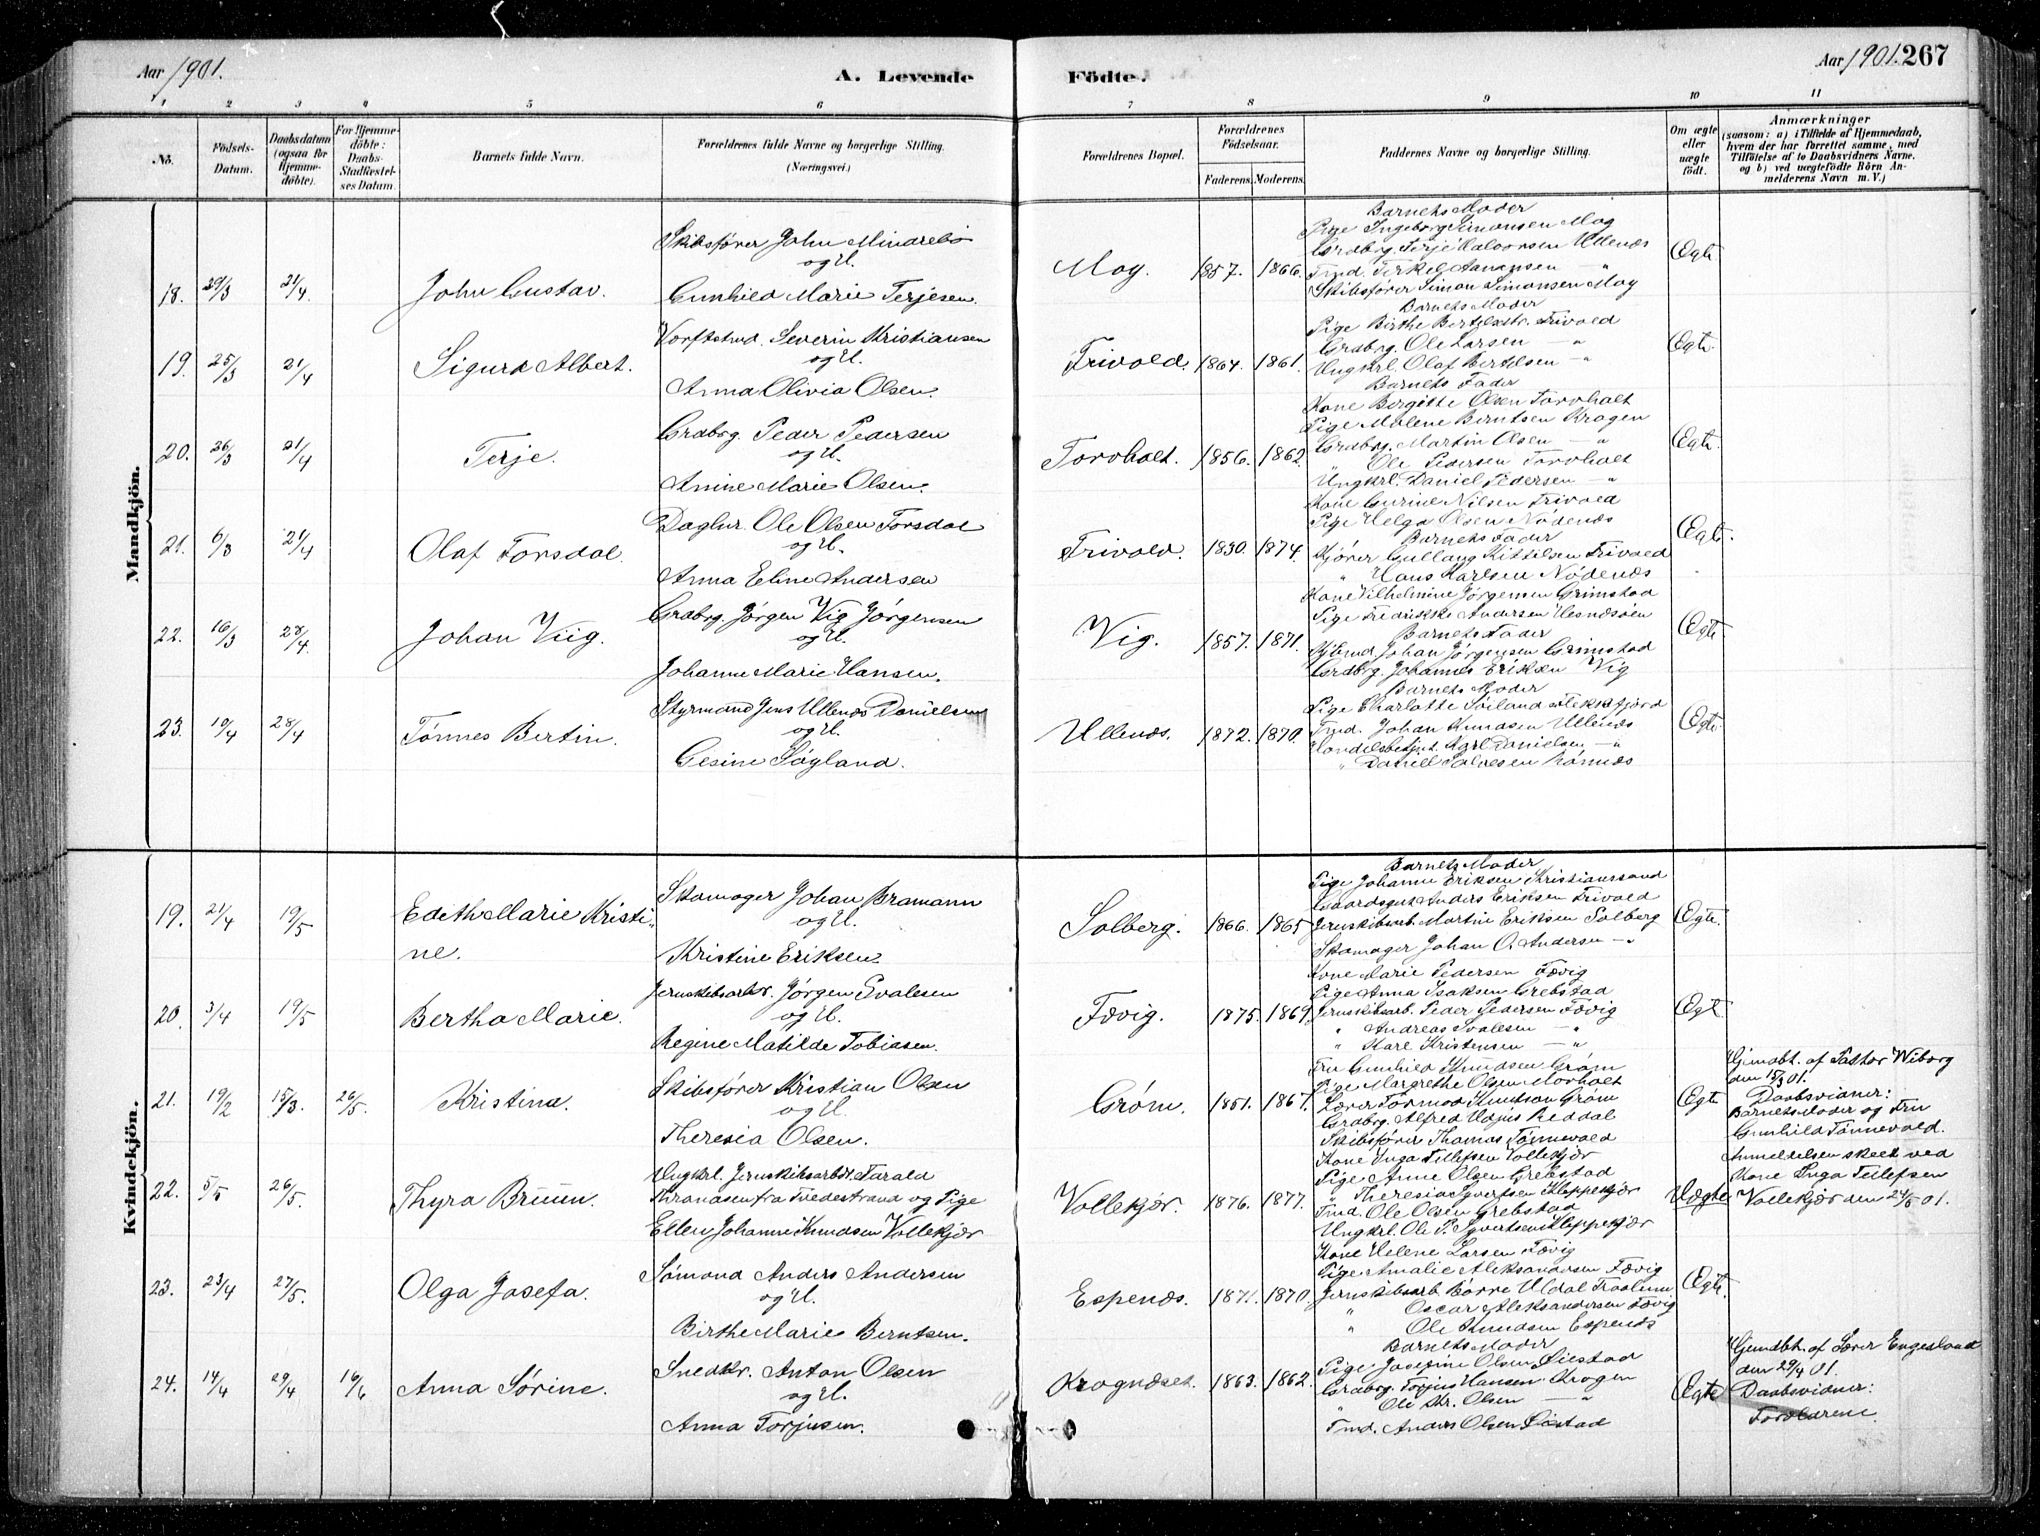 Aar 1901.
A. Levende
Födte.
Aar 1901. 267
1 2 3 4 5 6 7 8 9 10 11
No.
Födsels-
Datum.
Daabsdatum
(ogsaa for
Hjemme-
döbte).
For Hjemme-
döbte:
Daabs-
Stadfæstel-
ses Datum.
Barnets fulde Navn.
Forældrenes fulde Navne og borgerlige Stilling.
(Næringsvei.)
Forældrenes Bopæl.
Forældrenes
Födselsaar.
Faderens. Moderens.
Faddernes Navne og borgerlige Stilling.
Om ægte
eller
uægte
født.
Anmærkninger
(saasom: a) i Tilfælde af Hjemmedaab,
hvem der har forrettet samme, med
Tilföielse af to Daabsvidners Navne,
og b) ved uægtefödte Börn An-
melderens Navn m. V.)
Mandkjön.
18. 29/3 21/4. John Gustav.
Skibsfører John Mindrebø
og H.
Gunhild Marie Terjesen.
Moy. 1857. 1866.
Barnets Moder
Pige Ingeborg Simonsen Moy
Grdbrg. Terje Halvorsen Ullenæs
Tmd. Terkel Aanensen — "
Skibsfører Simon Simonsen Moy
Egte
19. 25/3 21/4 Sigurd Albert.
Værftstmd. Severin Kristiansen
og H.
Anna Olivia Olsen.
Frivold. 1864. 1861.
Barnets Moder
Pige Birthe Bertelsdtr. Frivold
Grdbrg. Ole Larsen — "
Ungkrl. Olaf Bertelsen — "
Barnets Fader
Egte.
20. 26/3 21/4 Terje.
Grdbrg. Peder Pedersen
og H.
Anine Marie Olsen.
Torvholt. 1856. 1862
Kone Bergitte Olsen Torvholt
Pige Malene Berntsen Krogen
Grdbrg. Martin Olsen — "
" Ole Pedersen Torvholt
Ungkrl. Daniel Pedersen — "
Egte.
21. 6/3 21/4 Olaf Torsdal.
Daglnr. Ole Olsen Torsdal
og H.
Anna Eline Andersen
Frivold. 1830. 1874.
Kone Gurine Nilsen Frivold
Pige Helga Olsen Nødenæs
Barnets Fader
Kjører Gullaug Kittelsen Frivold
" Hans Karlsen Nødenæs
Egte.
22. 16/3 28/4. Johan Viig.
Grdbrg. Jørgen Vig Jørgensen
og H.
Johanne Marie Hansen.
Vig. 1857. 1871.
Kone Vilhelmine Jørgensen Grimstad
Pige Fredrikke Andersen Hesnæsøen
Barnets Fader
Kjbmd. Johan Jørgensen Grimstad
Grdbrg. Johannes Eriksen Vig
Egte.
23. 10/4 28/4 Tønnes Bertin.
Styrmand Jens Ullenæs Danielsen
og H.
Gesine Søyland.
Ullenæs. 1872. 1870.
Barnets Moder
Pige Charlotte Søiland Flekkefjord
Tmd. Johan Knudsen Ullenæs
Handelsbetjnt. Karl Danielsen — "
" Daniel Salvesen
Egte
Kvindekjön.
19. 21/4 19/5 Edith Marie Kristi-
ne.
Skomager Johan Bramann
og H.
Kristine Eriksen
Solberg. 1866. 1865
Barnets Moder
Pige Johanne Eriksen Kristianssand
Gaardsgut Anders Eriksen Frivold
Jernskibsarb. Martin Eriksen Solberg
Skomager Johan O. Andersen — "
Egte.
20 3/4 19/5 Bertha Marie.
Jernskibsarbr. Jørgen Evalsen
og H.
Regine Matilde Tobiasen.
Fævig. 1875. 1869.
Kone Marie Pedersen Fævig
Pige Anna Isaksen Grebstad
Jernskibsarb. Peder Pedersen Fævig
" Andreas Evalsen — "
" Karl Kristensen — "
Egte
21. 19/2 15/3. 26/5. Kristina.
Skibsfører Kristian Olsen
og H.
Theresia Olsen.
Grøm. 1851. 1867.
Fru Gunhild Knudsen Grøm
Pige Margrethe Olsen Morholt
Lærer Tormod Knutson Grøm
Grdbrg. Alfred Reddal
Skibsfører Thomas Tønnevold
Egte
Hjemdbt. af Pastor Wiborg
den 15/3 01.
Daabsvidner:
Barnets Moder og Fru
Gunhild Tønnevold.
22. 5/5 26/5. Thyra Bruun.
Ungkrl. Jernskibsarbdr. Tarald
fra Tvedestrand og Pige
Ellen Johanne Knudsen Vollekjær
Vollekjær. 1876. 1877.
Kone Inga Tellefsen Vollekjær
Pige Anne Olsen Grebstad
" Theresia Syvertsen Kleppekjær
Tmd. Ole Olsen Grebstad
Ungkrl. Ole P. Syvertsen Kleppekjær
Uægte
Anmeldelsen skeet ved
Kone Inga Tellefsen
Vollekjær den 24/5 01.
23. 23/4 27/5. Olga Josefa.
Sømand Anders Andersen
og H.
Birthe Marie Berntsen.
Espenæs. 1871. 1870
Kone Helene Larsen Fævig
Pige Amalie Aleksandersen Fævig
Jernskibsarb. Børre Uldal
" Oscar Aleksandersen Fævig
" Ole Knudsen Espenæs
Egte.
24. 14/4 29/4 16/6 Anna Sørine.
Snedkr. Anton Olsen
og H.
Anna Torjusen.
Krognæset. 1863. 1862.
Barnets Moder
Pige Josefine Olsen Øiestad
Grdbrg. Torjus Hansen Krogen
" Ole Kr. Olsen — "
Tmd. Anders Olsen Øiestad
Egte
Hjemdbt. af Lærer Engesland
den 29/4 01.
Daabsvidner:
Forældrene.